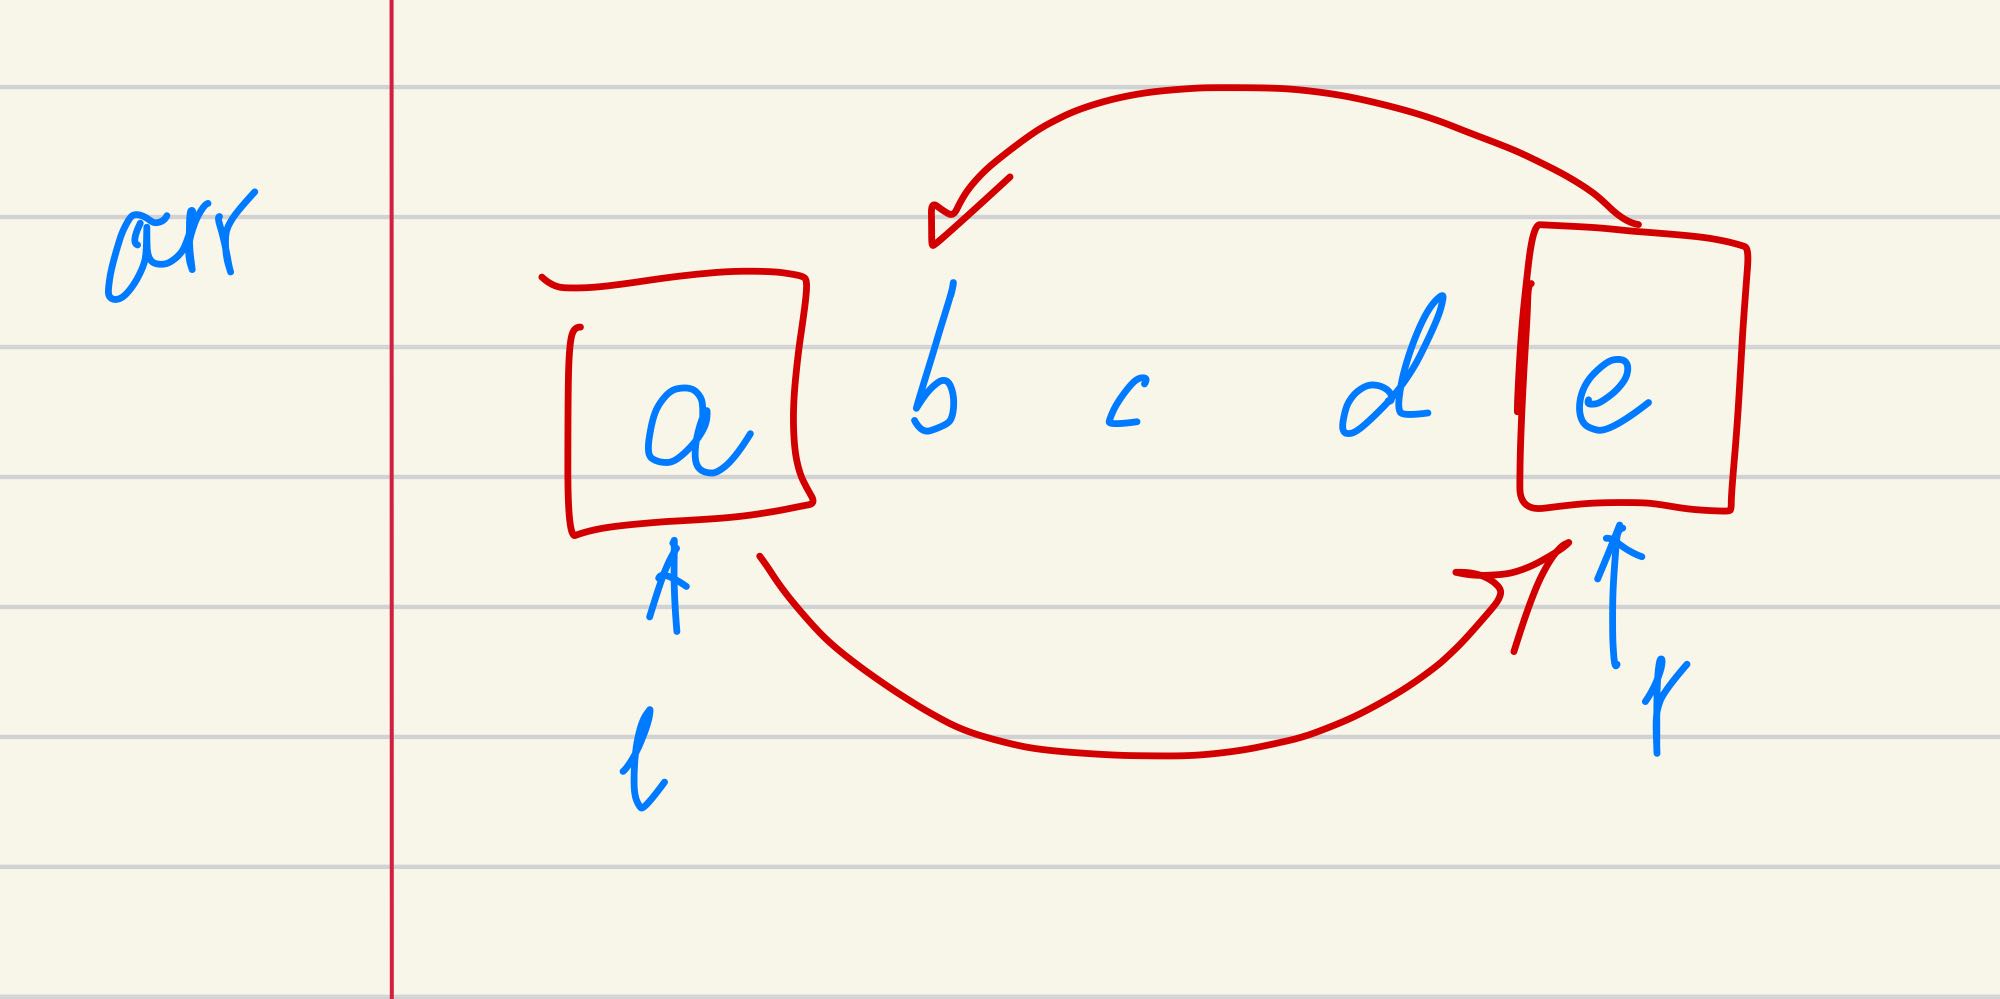 arr
a b c d e
l r